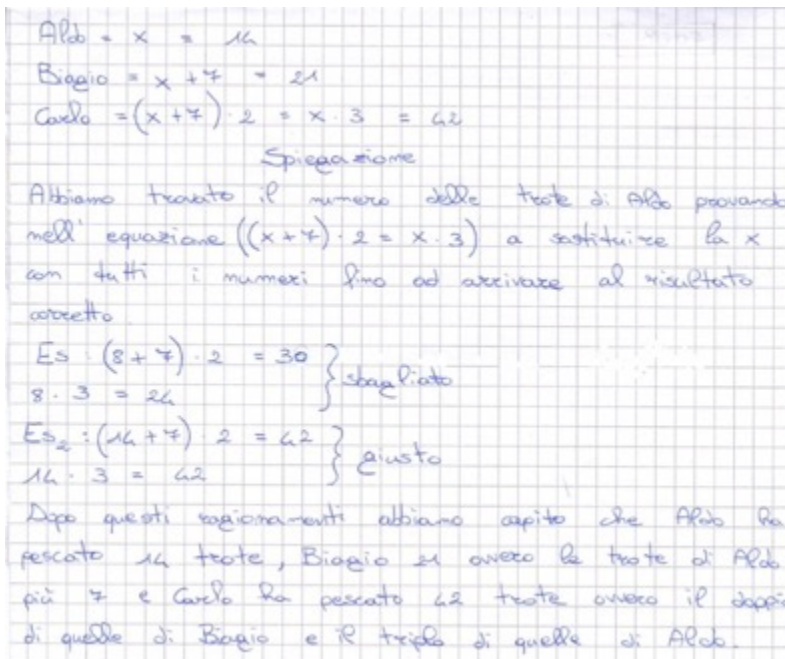 Aldo = x = 14
Biagio = x + 7 = 21
Carlo = (x + 7) · 2 = x · 3 = 42
Spiegazione
Abbiamo trovato il numero delle trote di Aldo provando
nell' equazione ((x + 7) · 2 = x · 3) a sostituire la x
con tutti i numeri fino ad arrivare al risultato
corretto.
Es : (8 + 7) · 2 = 30
8 · 3 = 24 } sbagliato
Es₂ : (14 + 7) · 2 = 42
14 · 3 = 42 } giusto
Dopo questi ragionamenti abbiamo capito che Aldo ha
pescato 14 trote, Biagio 21 ovvero le trote di Aldo
più 7 e Carlo ha pescato 42 trote ovvero il doppio
di quelle di Biagio e il triplo di quelle di Aldo.